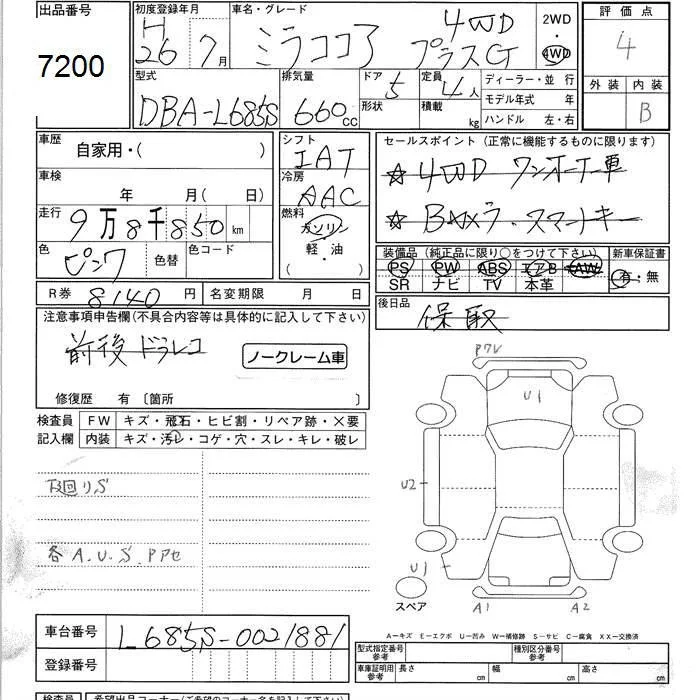 出品番号 初度登録年月 車名・グレード 評価点
7200 H 26 7月 ミラココア 4WD プラスG 2WD・4WD 4
外装 内装
B
型式 排気量 ドア 形状 定員 積載 ディーラー・並行
DBA-L685S 660cc 5 4人 kg モデル年式 年
ハンドル 左・右
車歴 自家用・( ) シフト IAT セールスポイント (正常に機能するものに限ります)
車検 年 月( 日) 冷房 AAC ☆4WD ワンオーナー車
走行 9万8千850km 燃料 ガソリン ☆Bカメラ・スマートキー
色 ピンク 色替 色コード 軽・油 ( )
装備品 (純正品に限り○をつけて下さい) 新車保証書
PS PW ABS エアB AW 有・無
SR ナビ TV 本革
R券 8140円 名変期限 月 日 後日品 保取
注意事項申告欄(不具合内容等は具体的に記入して下さい)
前後 ドラレコ ノークレーム車
修復歴 有 〔箇所 〕
検査員 FW キズ・飛石・ヒビ割・リペア跡・×要
記入欄 内装 キズ・汚レ・コゲ・穴・スレ・キレ・破レ
下回りS
各A.U.S.Pアセ
Pアレ
U1
U2
U1
スペア A1 A2
A-キズ E-エクボ U-凹み W-補修跡 S-サビ C-腐食 XX-交換済
車台番号 L685S-0021881 型式指定番号 参考 種別区分番号 参考
登録番号 車庫証明用 参考 長さ cm 幅 cm 高さ cm
検査員 希望出品コーナー(ご希望のコーナー名を記入して下さい)